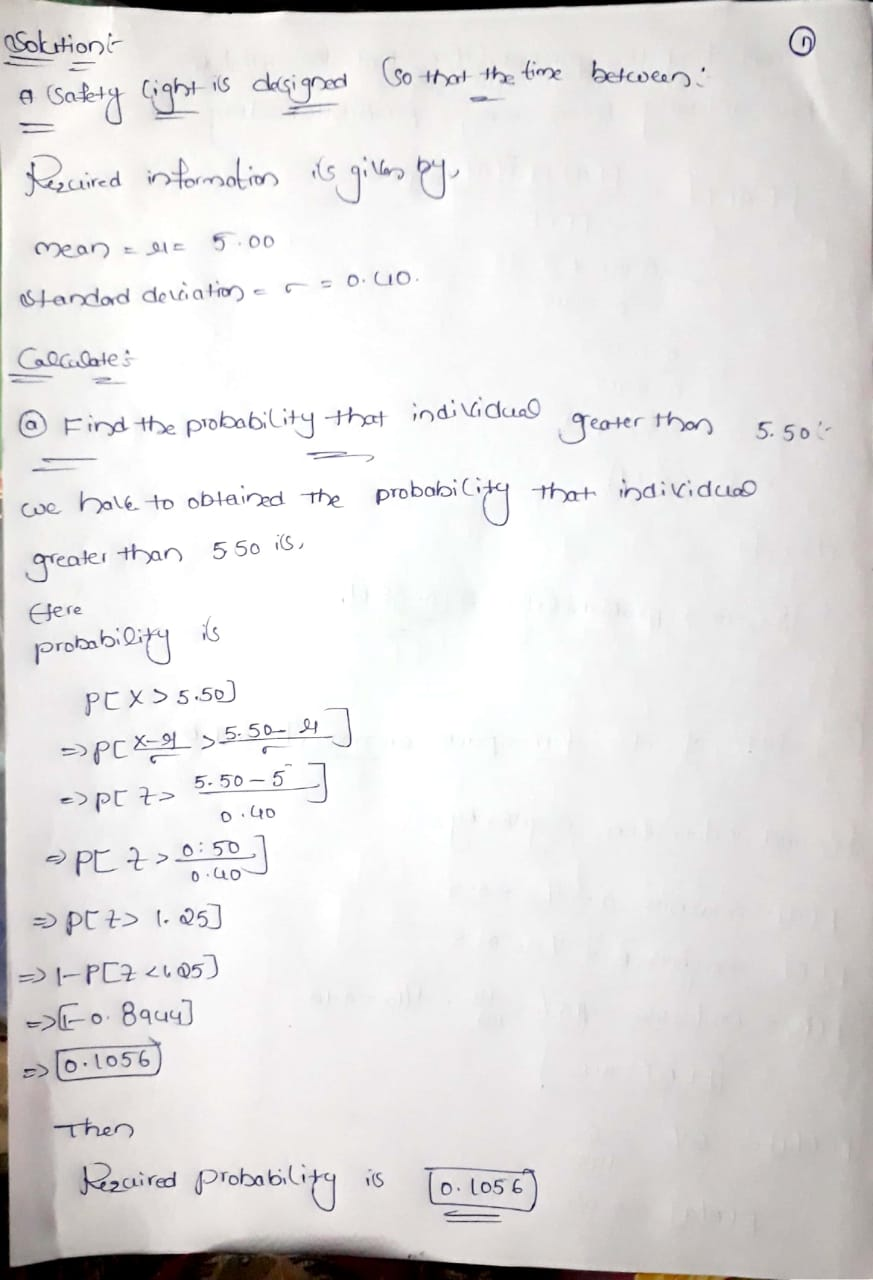 Solution:-
①
A Safety light is designed (so that the time between:
Required information is given by,
mean = μ = 5.00
Standard deviation = σ = 0.40.
Calculate:
ⓐ Find the probability that individual greater than 5.50:-
we have to obtained the probability that individual
greater than 5 50 is,
Here
probability is
P[X > 5.50]
=> P[X-μ/σ > 5.50-μ/σ]
=> P[Z > 5.50-5/0.40]
=> P[Z > 0.50/0.40]
=> P[Z > 1.25]
=> 1-P[Z < 1.25]
=> [1-0.8944]
=> 0.1056
Then
Required probability is 0.1056